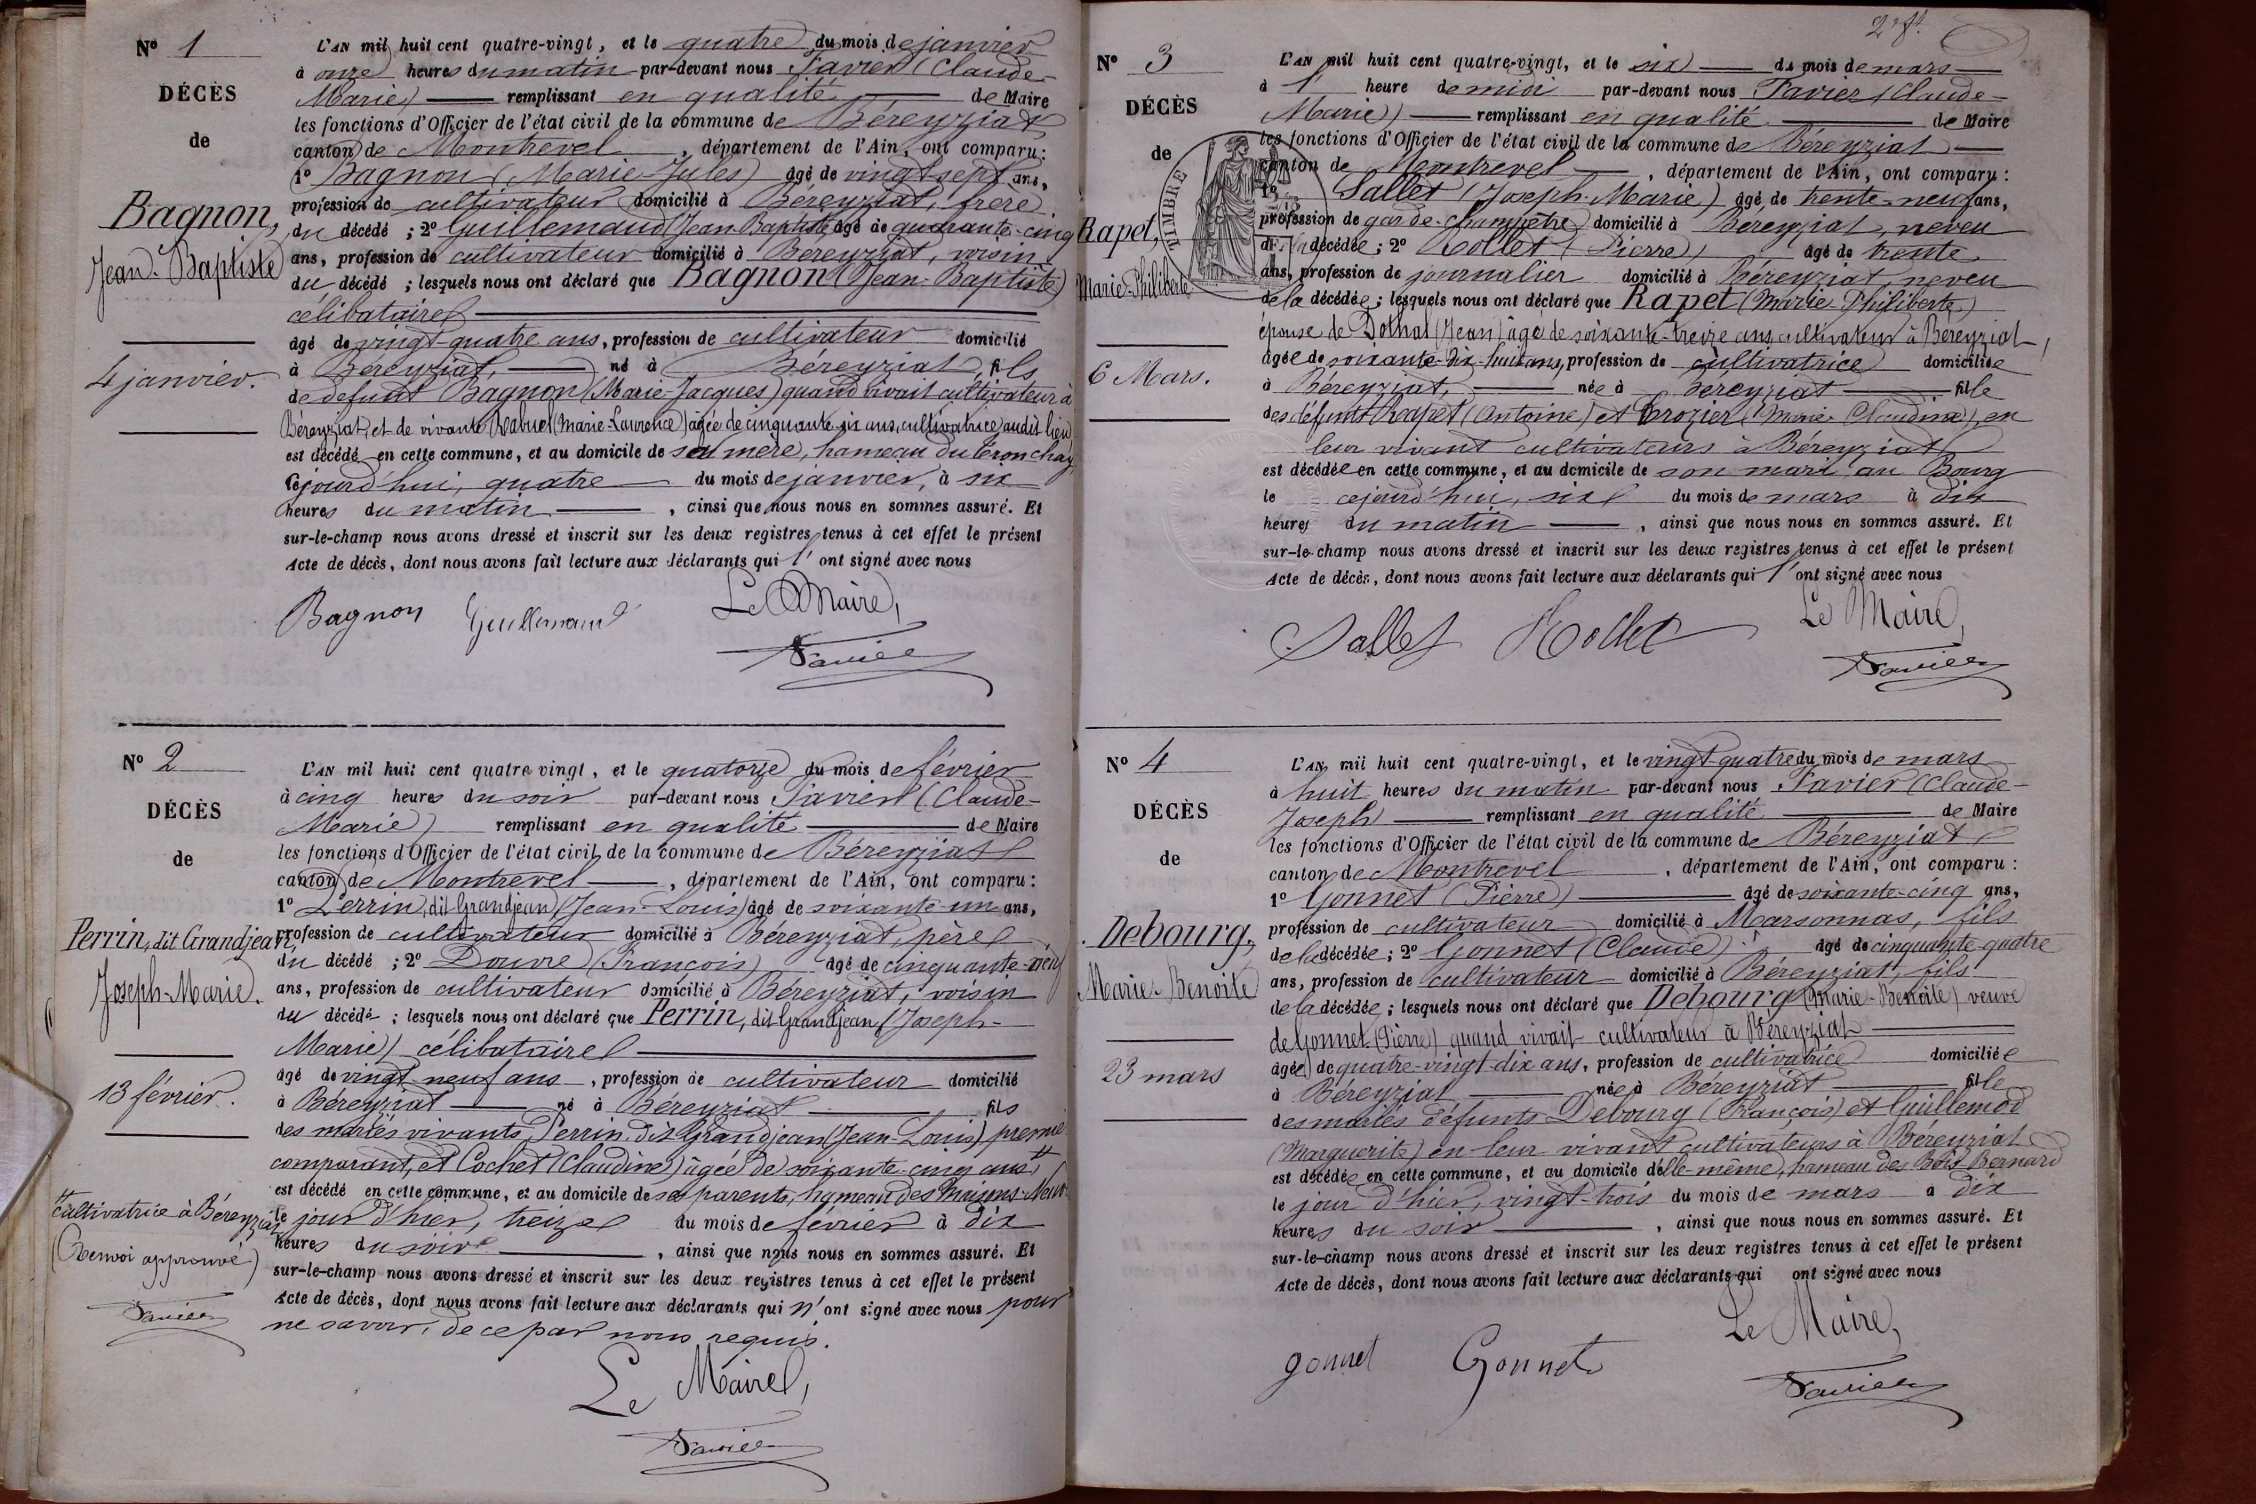 Nº 1
DÉCÈS
de
Bagnon,
Jean-Baptiste
4 janvier.
L'AN mil huit cent quatre-vingt, et le quatre du mois de janvier
à onze heures du matin par-devant nous Favier (Claude-
Marie) remplissant en qualité de Maire
les fonctions d'Officier de l'état civil de la commune de Béreyziat
canton de Montrevel, département de l'Ain, ont comparu :
1º Bagnon (Marie-Jules) âgé de vingt-sept ans,
profession de cultivateur domicilié à Béreyziat, frère
du décédé ; 2º Guillemaud (Jean-Baptiste) âgé de quarante-cinq
ans, profession de cultivateur domicilié à Béreyziat, voisin
du décédé ; lesquels nous ont déclaré que Bagnon (Jean-Baptiste)
célibataire
âgé de vingt-quatre ans, profession de cultivateur domicilié
à Béreyziat, né à Béreyziat, fils
de défunt Bagnon (Marie-Jacques) quand vivait cultivateur à
Béreyziat, et de vivante Rabuel (Marie-Laurence) âgée de cinquante-six ans, cultivatrice audit lieu
est décédé en cette commune, et au domicile de sa mère, hameau du
cejourd'hui, quatre du mois de janvier, à six
heures du matin, ainsi que nous nous en sommes assuré. Et
sur-le-champ nous avons dressé et inscrit sur les deux registres tenus à cet effet le présent
Acte de décès, dont nous avons fait lecture aux déclarants qui l'ont signé avec nous
Bagnon Guillemaud Le Maire,
Favier
Nº 2
DÉCÈS
de
Perrin, dit Grandjean,
Joseph-Marie.
13 février.
L'AN mil huit cent quatre vingt, et le quatorze du mois de février
à cinq heures du soir par-devant nous Favier (Claude-
Marie) remplissant en qualité de Maire
les fonctions d'Officier de l'état civil de la commune de Béreyziat
canton de Montrevel, département de l'Ain, ont comparu :
1º Perrin, dit Grandjean (Jean-Louis) âgé de soixante-un ans,
profession de cultivateur domicilié à Béreyziat, père
du décédé ; 2º Douvre (François) âgé de cinquante-neuf
ans, profession de cultivateur domicilié à Béreyziat, voisin
du décédé ; lesquels nous ont déclaré que Perrin, dit Grandjean (Joseph-
Marie) célibataire
âgé de vingt-neuf ans, profession de cultivateur domicilié
à Béreyziat né à Béreyziat fils
des mariés vivants Perrin, dit Grandjean (Jean-Louis) premier
comparant, et Cochet (Claudine) âgée de soixante-cinq ans #
est décédé en cette commune, et au domicile de ses parents, hameau des Maisons-Neuves
le jour d'hier, treize du mois de février à dix
heures du soir, ainsi que nous nous en sommes assuré. Et
sur-le-champ nous avons dressé et inscrit sur les deux registres tenus à cet effet le présent
Acte de décès, dont nous avons fait lecture aux déclarants qui n'ont signé avec nous pour
ne savoir, de ce par nous requis.
# cultivatrice à Béreyziat
(Renvoi approuvé)
Favier
Le Maire,
Favier
Nº 3
DÉCÈS
de
Rapet,
Marie-Philiberte
6 Mars.
TIMBRE
L'AN mil huit cent quatre-vingt, et le six du mois de mars
à 1 heure de midi par-devant nous Favier (Claude-
Marie) remplissant en qualité de Maire
les fonctions d'Officier de l'état civil de la commune de Béreyziat
canton de Montrevel, département de l'Ain, ont comparu :
1º Sallet (Joseph-Marie) âgé de trente-neuf ans,
profession de garde-champêtre domicilié à Béreyziat, neveu
de la décédée ; 2º Rollet (Pierre) âgé de trente
ans, profession de journalier domicilié à Béreyziat neveu
de la décédée ; lesquels nous ont déclaré que Rapet (Marie-Philiberte)
épouse de Dothal (Jean) âgé de soixante-treize ans, cultivateur à Béreyziat,
âgée de soixante-dix-huit ans, profession de cultivatrice domiciliée
à Béreyziat, née à Béreyziat fille
des défunts Rapet (Antoine) et Crozier (Marie-Claudine), en
leur vivant cultivateurs à Béreyziat
est décédée en cette commune, et au domicile de son mari au Bourg
le cejourd'hui, six du mois de mars à dix
heures du matin, ainsi que nous nous en sommes assuré. Et
sur-le-champ nous avons dressé et inscrit sur les deux registres tenus à cet effet le présent
Acte de décès, dont nous avons fait lecture aux déclarants qui l'ont signé avec nous
Sallet Rollet Le Maire,
Favier
Nº 4
DÉCÈS
de
Debourg,
Marie-Benoite
23 mars
L'AN mil huit cent quatre-vingt, et le vingt-quatre du mois de mars
à huit heures du matin par-devant nous Favier (Claude-
Joseph) remplissant en qualité de Maire
les fonctions d'Officier de l'état civil de la commune de Béreyziat
canton de Montrevel, département de l'Ain, ont comparu :
1º Gonnet (Pierre) âgé de soixante-cinq ans,
profession de cultivateur domicilié à Marsonnas, fils
de la décédée ; 2º Gonnet (Claude) âgé de cinquante-quatre
ans, profession de cultivateur domicilié à Béreyziat, fils
de la décédée ; lesquels nous ont déclaré que Debourg (Marie-Benoite) veuve
de Gonnet (Pierre) quand vivait cultivateur à Béreyziat
âgée de quatre-vingt-dix ans, profession de cultivatrice domiciliée
à Béreyziat née à Béreyziat fille
des mariés défunts Debourg (François) et Guillemod
(Marguerite) en leur vivant cultivateurs à Béreyziat
est décédée en cette commune, et au domicile d'elle-même, hameau des Bois Bernard
le jour d'hier, vingt-trois du mois de mars à dix
heures du soir, ainsi que nous nous en sommes assuré. Et
sur-le-champ nous avons dressé et inscrit sur les deux registres tenus à cet effet le présent
Acte de décès, dont nous avons fait lecture aux déclarants qui ont signé avec nous
Le Maire,
gonnet Gonnet
Favier